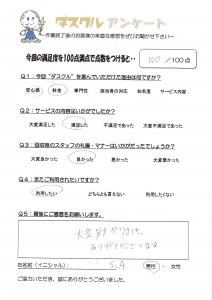 ダスクルアンケート
～作業終了後のお客様の率直な感想をぜひお聞かせ下さい～
今回の満足度を100点満点で点数をつけると・・ 100 /100点
Q1：今回“ダスクル”を選んでいただけた理由は何ですか？
安心感 料金 専門性 担当者の対応 知名度 サービス内容
Q2：サービスの内容はいかがでしたか？
大変満足した 満足した 不満足であった 大変不満であった
Q3：回収時のスタッフの礼儀・マナーはいかがだったでしょうか？
大変良かった 良かった 悪かった 大変悪かった
Q4：またご利用されたいですか？
利用したい どちらとも言えない 利用したくない
Q5：最後にご感想をお願いします。
大変助かりました
ありがとうございます
お名前（イニシャル）： S.A 男性・女性
ご協力いただき、誠にありがとうございました。